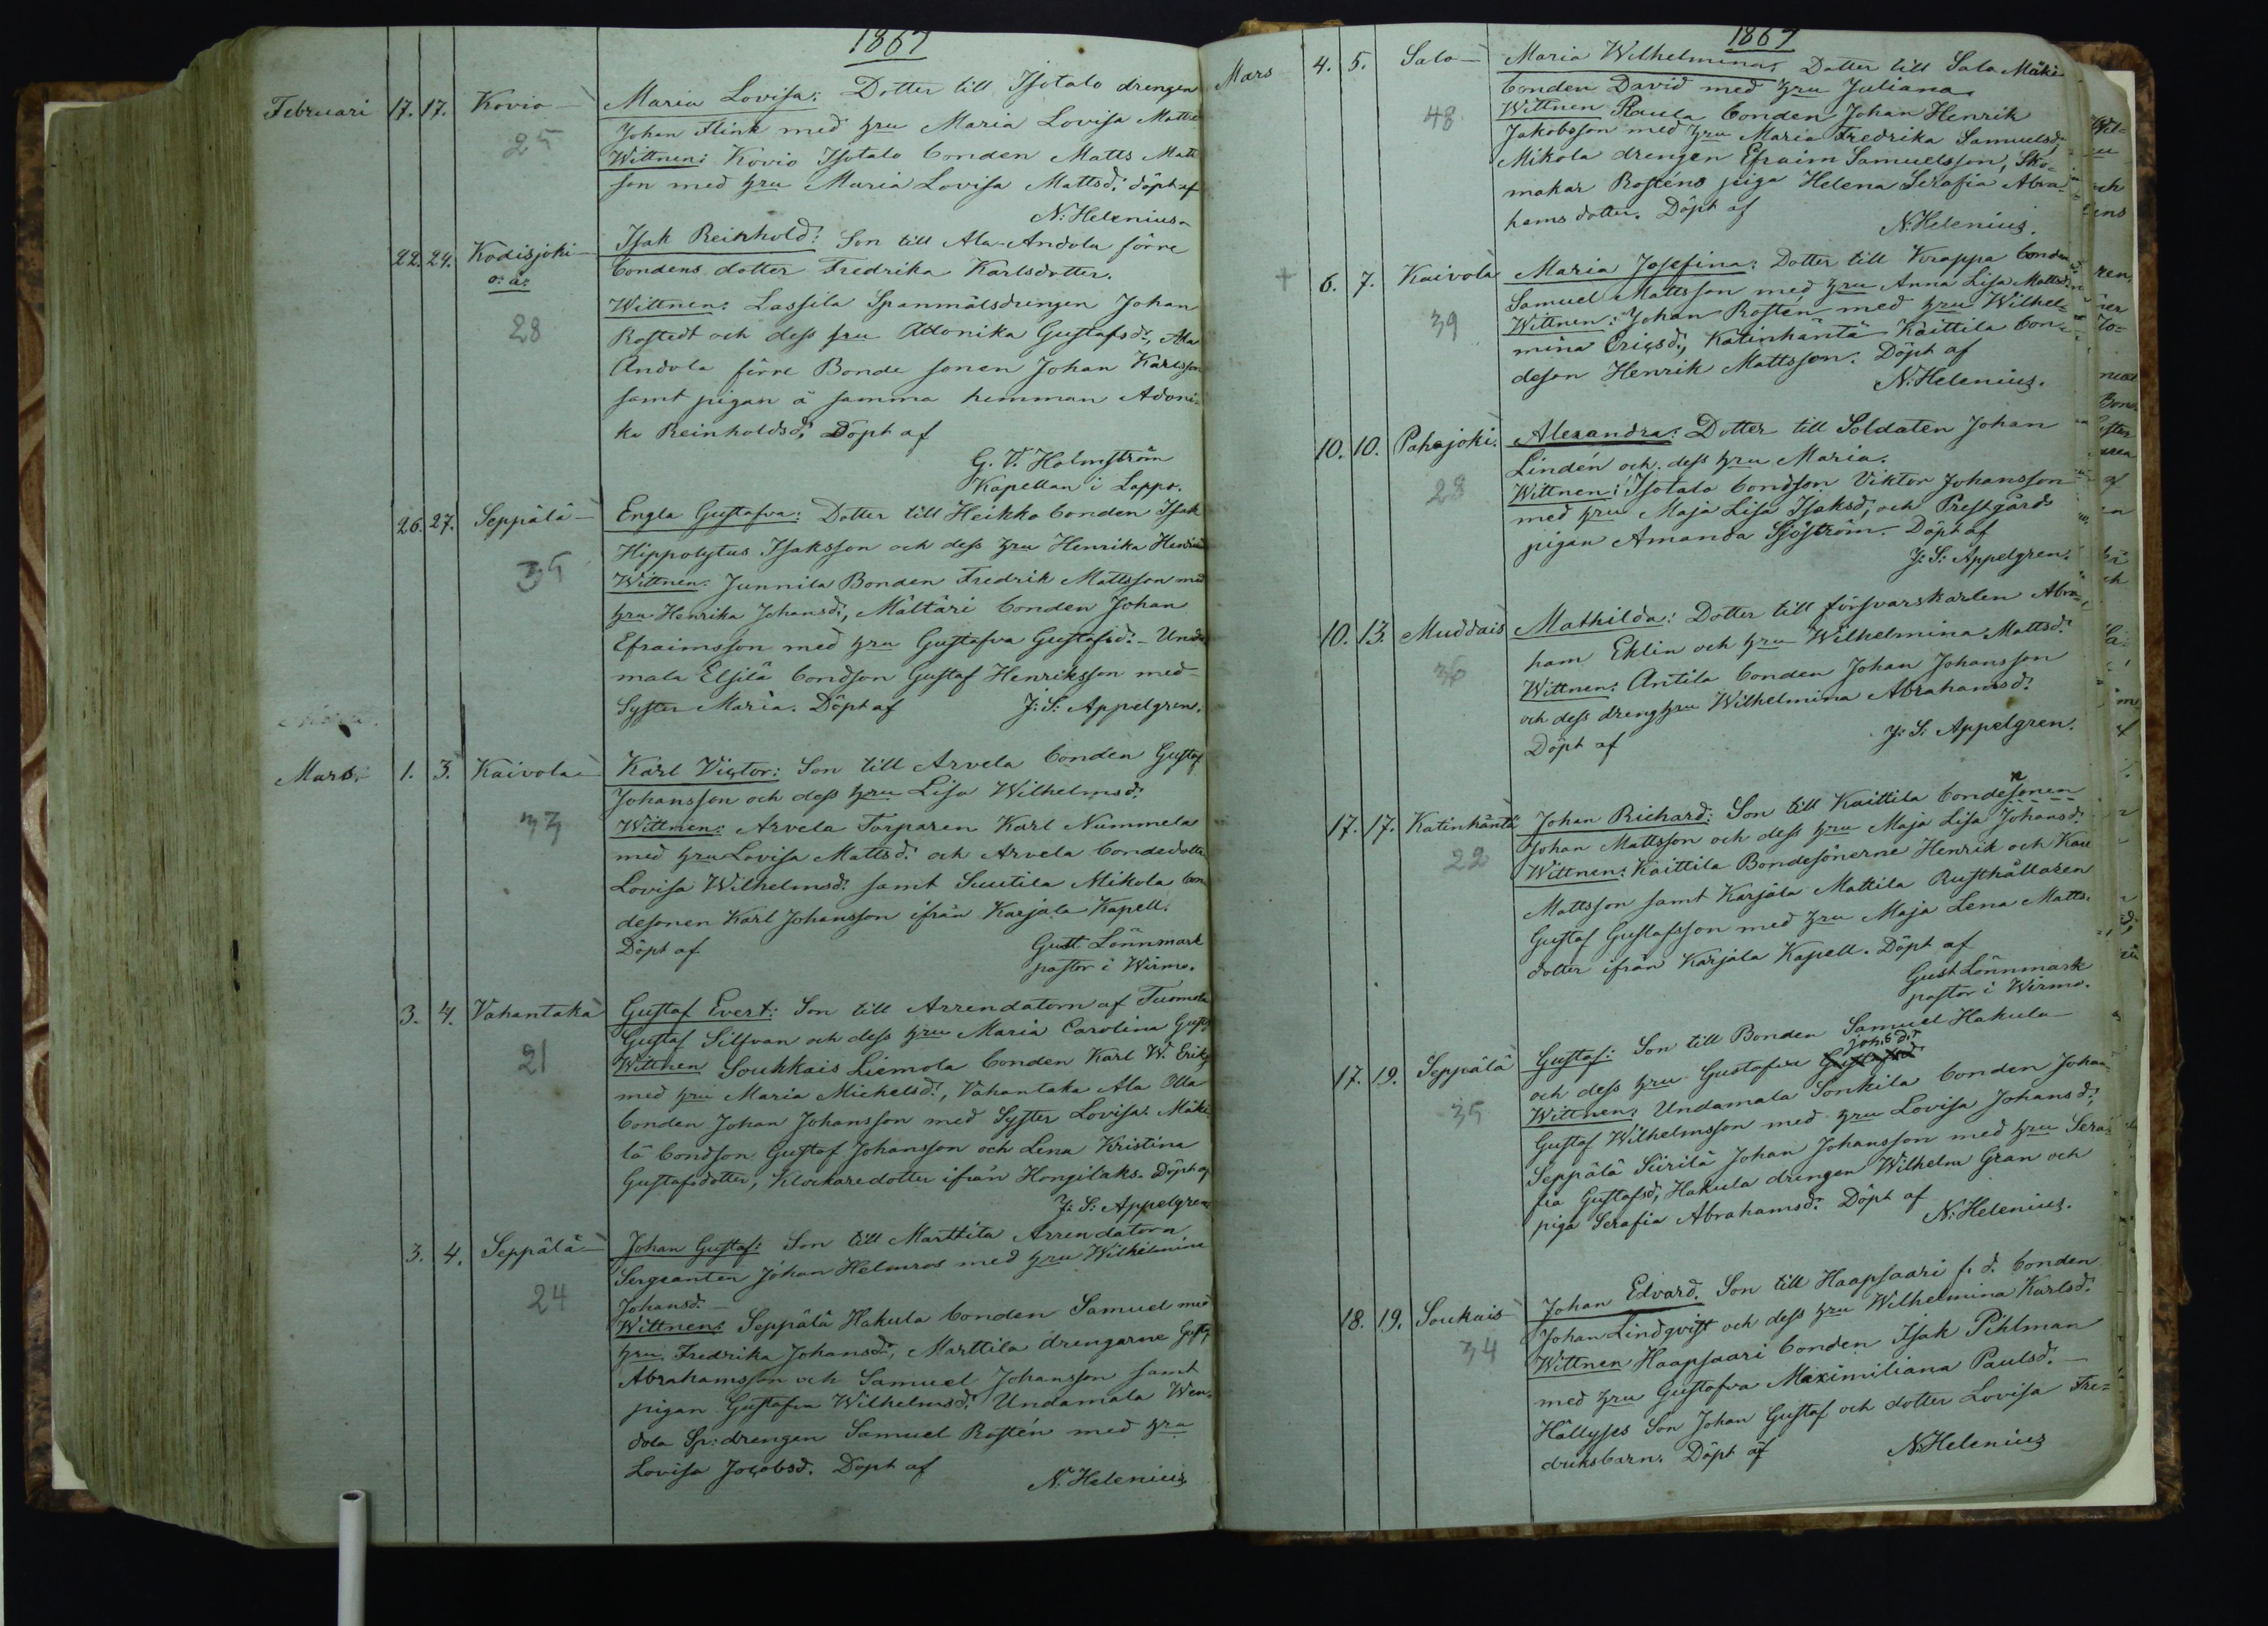 1867
Februari 17. 17. Kovio — Maria Lovisa: Dotter till Isotalo drengen
25 Johan Flink med hru Maria Lovisa Matts
Wittnen: Kovio Isotalo bonden Matts Matt
son med hru Maria Lovisa Mattsd: döpt af
N. Helenius.
22. 24. Kodisjoki — Isak Reinhold: Son till Ala-Andola förre
o: ä: bondens dotter Fredrika Karlsdotter.
Wittnen: Lassila Spanmålsdrengen Johan
28 Rostedt och dess hru Adonika Gustafsd:, Ala
Andola förre Bonde sonen Johan Karlsson
samt pigan å samma hemman Adoni-
ka Reinholdsd: Döpt af
G. V. Holmström
Kapellan i Lappo.
26. 27. Seppälä — Engla Gustafva: Dotter till Heikko bonden Isak
Hippolytus Isaksson och dess hru Henrika
35 Wittnen: Junnila Bonden Fredrik Mattsson med
hru Henrika Johansd:, Mältäri bonden Johan
Efraimsson med hru Gustafva Gustafsd: — Unda
mala Eljilä bondson Gustaf Henriksson med
Syster Maria. Döpt af J: S: Appelgren.
Mars 1. 3. Kaivola — Karl Victor: Son till Arvela bonden Gustaf
Johansson och dess hru Lisa Wilhelmsd:
33 Wittnen: Arvela Torparen Karl Nummela
med hru Lovisa Mattsd: och Arvela bondedotter
Lovisa Wilhelmsd: samt Suutila Mikola bon
desonen Karl Johansson ifrån Karjala Kapell.
Döpt af Gust Lönnmark
pastor i Wirmo.
3. 4. Vahantaka Gustaf Evert: Son till Arrendatorn af Tuomola
Gustaf Silfvan och dess hru Maria Carolina Gust
21 Wittnen Soukkais Liemola bonden Karl W. Eriks
med hru Maria Michelsd:, Vahantaka Ala Olla
bonden Johan Johansson med Syster Lovisa. Mäki
lä bondson Gustaf Johansson och Lena Kristina
Gustafsdotter, Klockaredotter ifrån Hongilaks. Döpt af
J: S: Appelgren
3. 4. Seppälä — Johan Gustaf: Son till Marttila Arrendatorn
Sergeanten Johan Helenros med hru Wilhelmina
24 Johansd. —
Wittnen: Seppälä Hakula bonden Samuel med
hru Fredrika Johansd:, Marttila drengarne Gustaf
Abrahamsson och Samuel Johansson samt
pigan Gustafva Wilhelmsd: Undamala Wen-
dola Sp: drengen Samuel Rostén med hru
Lovisa Jacobsd. Döpt af
N. Helenius
1867
Mars 4. 5. Salo — Maria Wilhelmina; Dotter till Salo Mäki
bonden David med hru Juliana.
48 Wittnen Raula bonden Johan Henrik
Jakobsson med hru Maria Fredrika Samuelsd,
Mikola drengen Efraim Samuelsson, Sko-
makar Rosténs piga Helena Serafia Abra-
hams dotter. Döpt af
N. Helenius.
+ 6. 7. Kaivola Maria Josefina: Dotter till Krappa bonden
Samuel Mattsson med hru Anna Lisa Mattsd:
39 Wittnen: Johan Rostén med hru Wilhel-
mina Ericsd:, Katinhäntä Kaittila bon-
deson Henrik Mattsson. Döpt af
N. Helenius.
10. 10. Pahojoki. Alexandra: Dotter till Soldaten Johan
Lindén och dess hru Maria.
28 Wittnen: Isotalo bondson Viktor Johansson
med hru Maja Lisa Isaksd, och Prestgårds
pigan Amanda Sjöström. Döpt af
J: S: Appelgren.
10. 13. Muddais Mathilda: Dotter till försvarskarlen Abra-
36 ham Eklin och hru Wilhelmina Mattsd:
Wittnen: Antila bonden Johan Johansson
och dess dreng hru Wilhelmina Abrahamsd:
Döpt af J: S: Appelgren.
17. 17. Katinhäntä Johan Richard: Son till Kaittila bondesonen
Johan Mattsson och dess hru Maja Lisa Johansd:
22 Wittnen: Kaittila Bondesönerne Henrik och Karl
Mattsson samt Karjala Mattila Rusthållaren
Gustaf Gustafsson med hru Maja Lena Matts-
dotter ifrån Karjala Kapell. Döpt af
Gust Lönnmark
pastor i Wirmo.
17. 19. Seppälä Gustaf: Son till Bonden Samuel Hakula
och dess hru Gustafva Johsd:
35 Wittnen: Undamala Sonkila bonden Johan
Gustaf Wilhelmsson med hru Lovisa Johansd:,
Seppälä Siirilä Johan Johansson med hru Sera-
fia Gustafsd:, Hakula drengen Wilhelm Gran och
piga Serafia Abrahamsd: Döpt af
N: Helenius.
18. 19. Soukais Johan Edvard. Son till Haapsaari f. d. bonden
Johan Lindqvist och dess hru Wilhelmina Karlsd:
34 Wittnen Haapsaari bonden Isak Pihlman
med hru Gustafva Maximiliana Paulsd. —
Hällyses Son Johan Gustaf och dotter Lovisa Fre-
driksbarn. Döpt af
N. Helenius